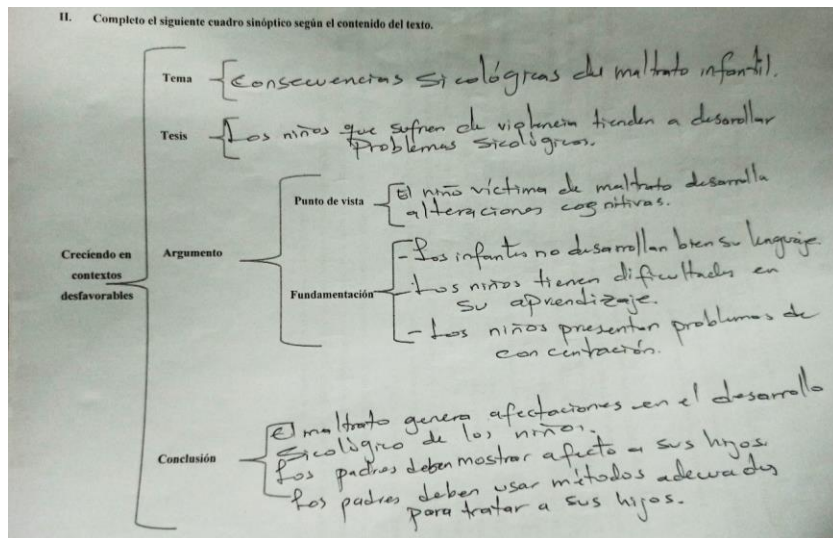 II. Completo el siguiente cuadro sinóptico según el contenido del texto.
Tema
Consecuencias sicológicas del maltrato infantil.
Tesis
Los niños que sufren de violencia tienden a desarollar
Problemas sicológicos.
Creciendo en
contextos
desfavorables
Argumento
Punto de vista
El niño víctima de maltrato desarrolla
alteraciones cognitivas.
Fundamentación
- Los infantes no desarrollan bien su lenguaje.
- Los niños tienen dificultades en
su aprendizaje.
- Los niños presentan problemas de
concentración.
Conclusión
El maltrato genera afectaciones en el desarrollo
sicológico de los niños.
Los padres deben mostrar afecto a sus hijos.
Los padres deben usar métodos adecuados
para tratar a sus hijos.